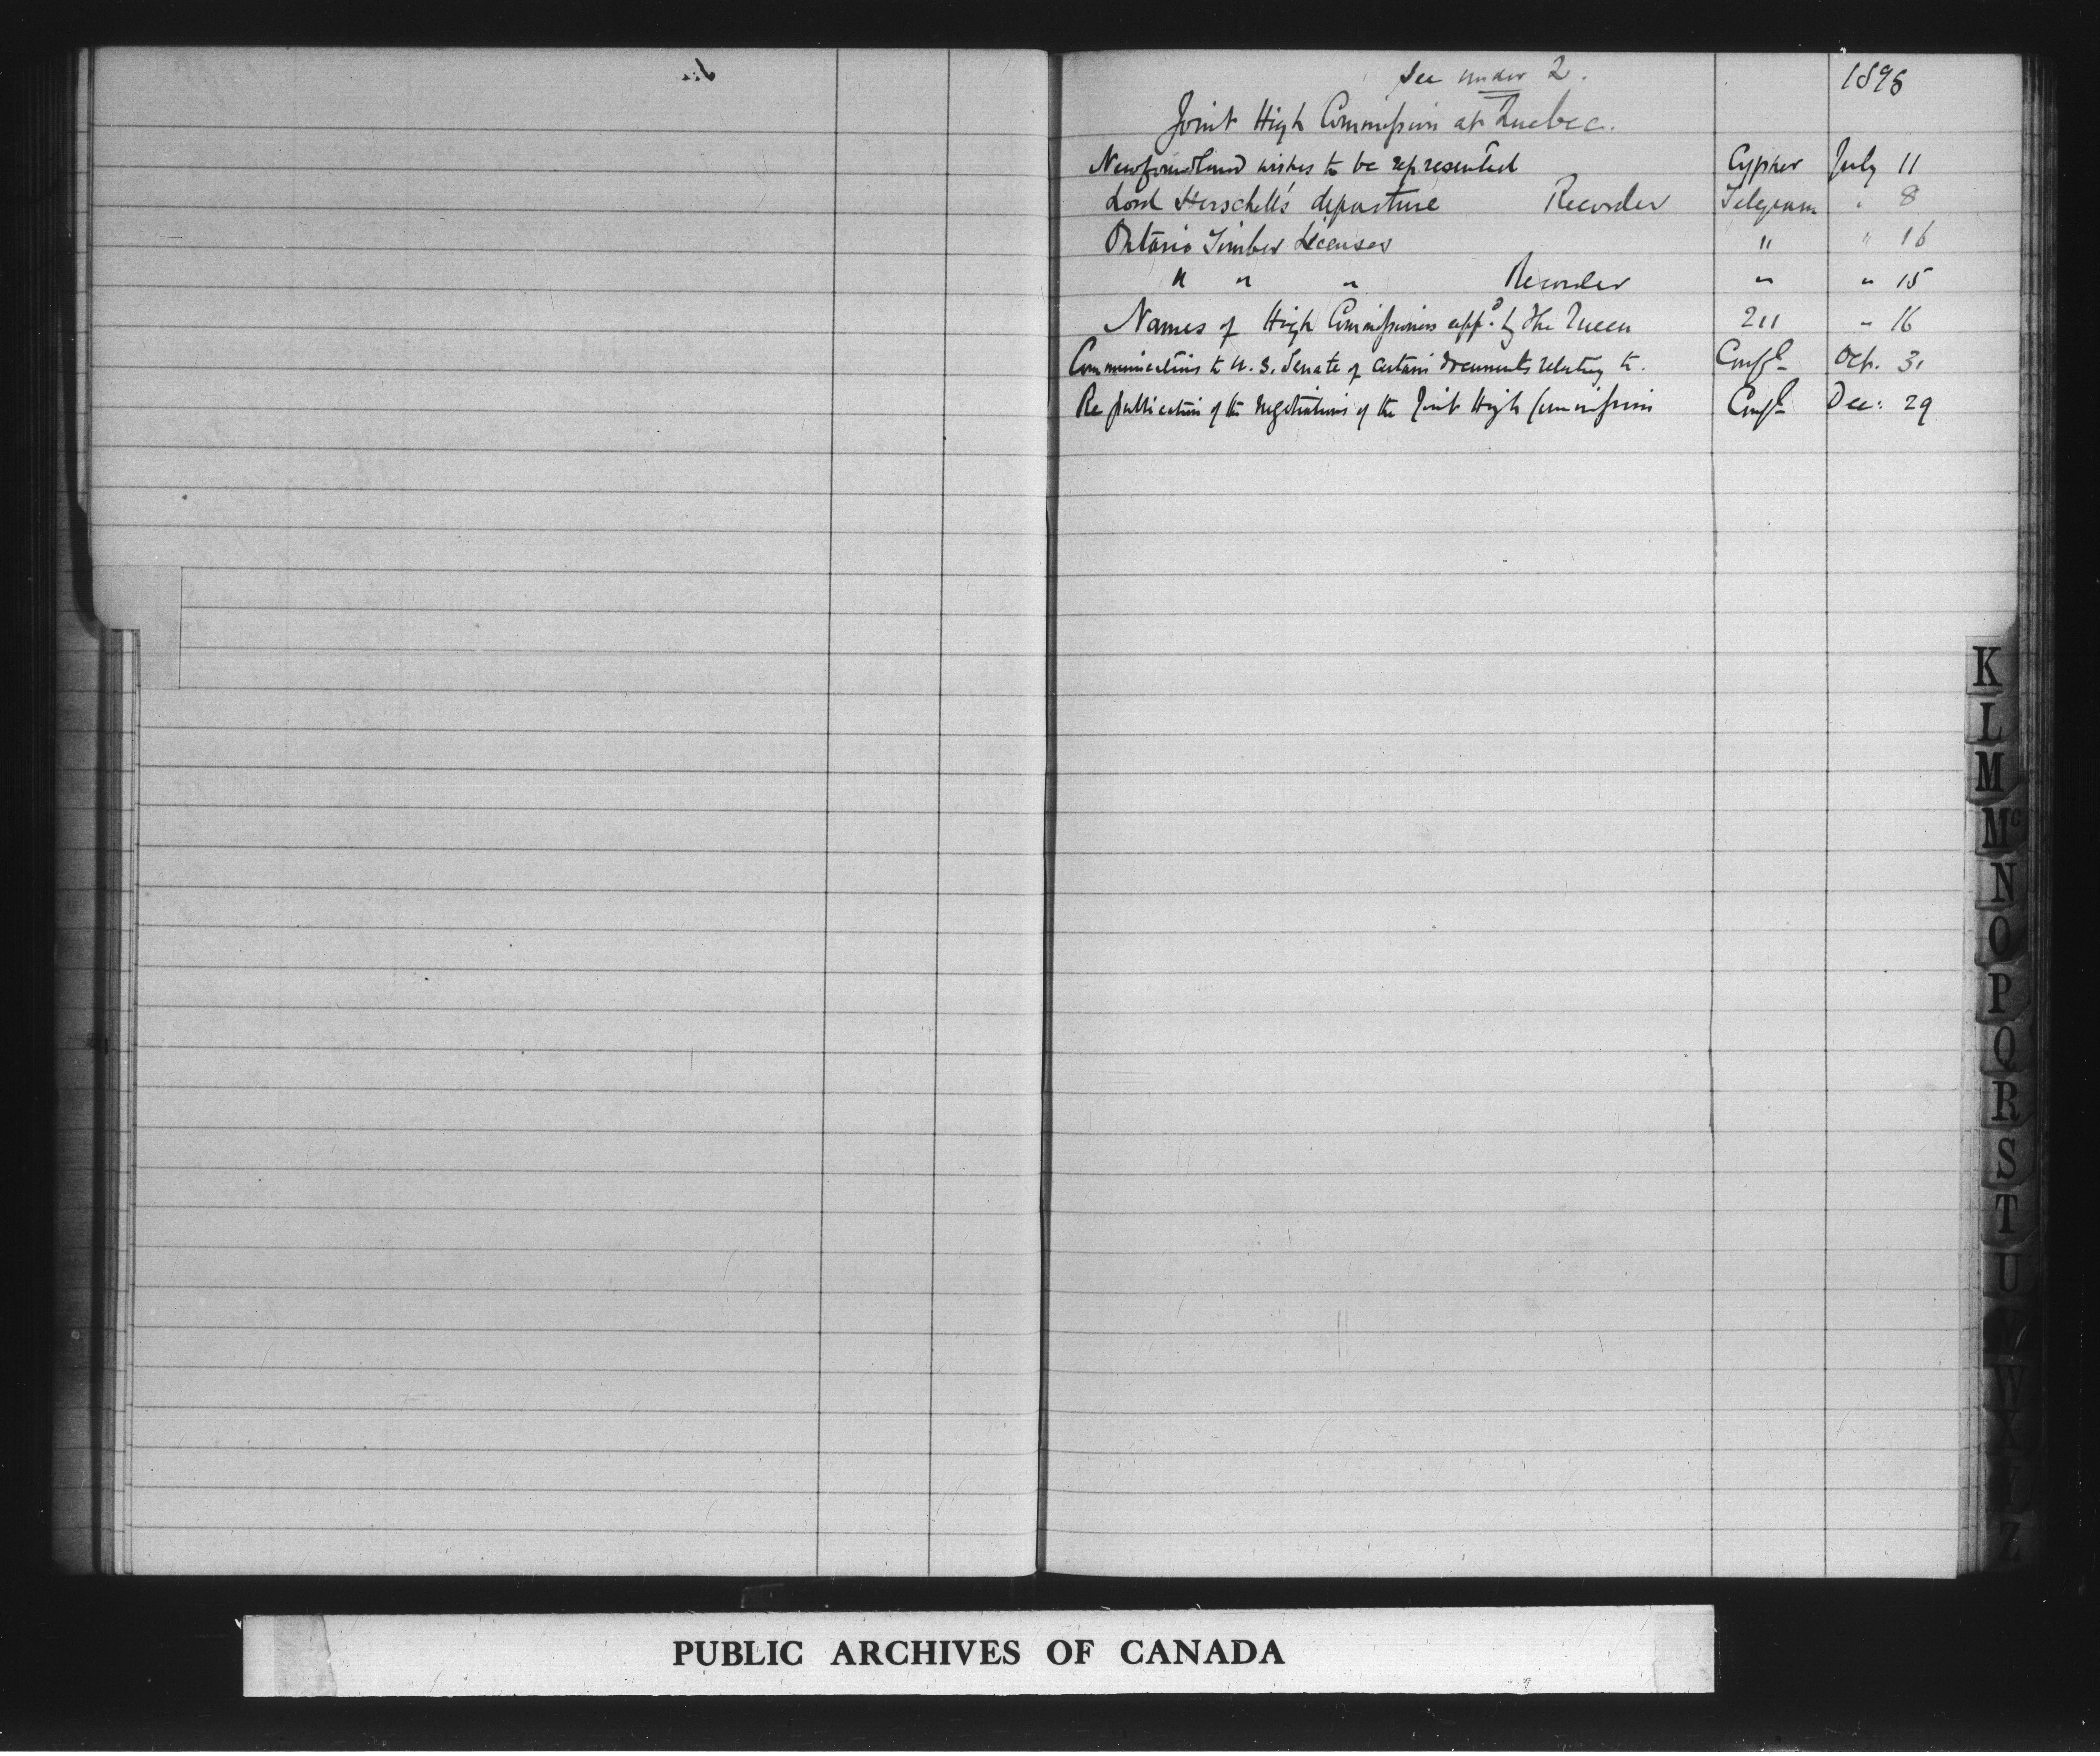 See under 2. 1898
Joint High Commission at Quebec.
Newfoundland wishes to be represented Cypher July 11
Lord Herschell's departure Recorder Telegram " 8
Ontario Timber Licenses " " 16
" " " Recorder " " 15
Names of High Commissioners appd. by the Queen 211 " 16
Communications to U.S. Senate of certain documents relating to. Confl Oct. 31
Re publication of the negotiations of the Joint High Commission Confl Dec: 29
K
L
M
Mc
N
O
P
Q
R
S
T
U
V
W
X
Z
PUBLIC ARCHIVES OF CANADA